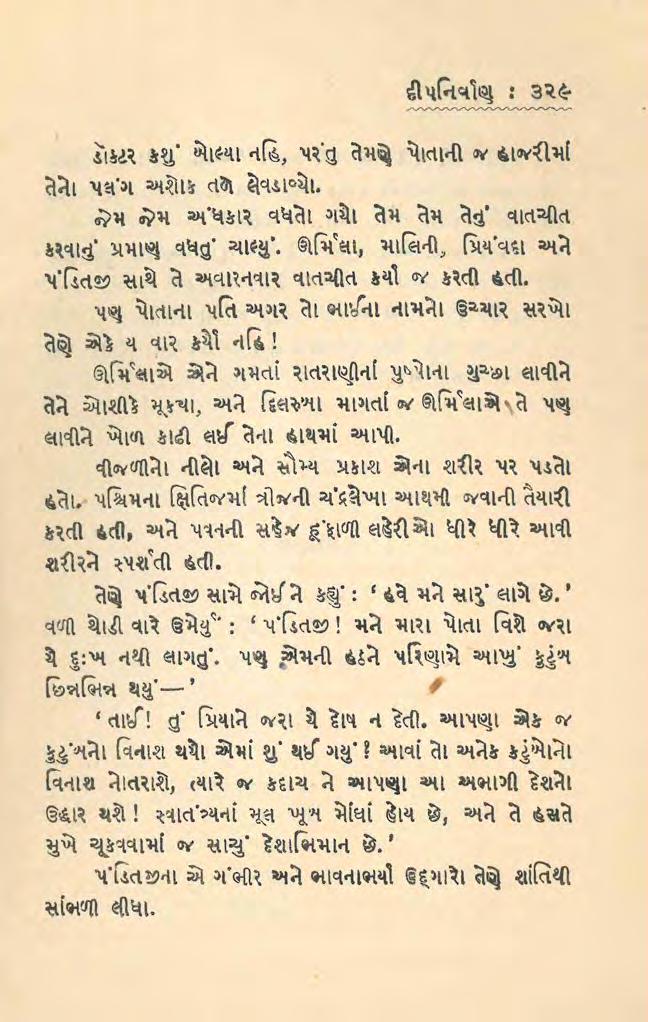 દીપનિર્વાણ : ૩૨૯
ડૉક્ટર કશું બોલ્યા નહિ, પરંતુ તેમણે પોતાની જ હાજરીમાં
તેનો પલંગ અશોક તળે લેવડાવ્યો.
જેમ જેમ અંધકાર વધતો ગયો તેમ તેમ તેનું વાતચીત
કરવાનું પ્રમાણ વધતું ચાલ્યું. ઊર્મિલા, માલિની, પ્રિયંવદા અને
પંડિતજી સાથે તે અવારનવાર વાતચીત કર્યા જ કરતી હતી.
પણ પોતાના પતિ અગર તો ભાઈના નામનો ઉચ્ચાર સરખો
તેણે એકે ય વાર કર્યો નહિ !
ઊર્મિલાએ એને ગમતાં રાતરાણીનાં પુષ્પોના ગુચ્છા લાવીને
તેને ઓશીકે મૂક્યા, અને દિલરુબા માગતાં જ ઊર્મિલાએ તે પણ
લાવીને ખોળ કાઢી લઈ તેના હાથમાં આપી.
વીજળીનો નીલો અને સૌમ્ય પ્રકાશ એના શરીર પર પડતો
હતો. પશ્ચિમના ક્ષિતિજમાં ત્રીજની ચંદ્રલેખા આથમી જવાની તૈયારી
કરતી હતી, અને પવનની સહેજ હૂંફાળી લહેરીઓ ધીરે ધીરે આવી
શરીરને સ્પર્શતી હતી.
તેણે પંડિતજી સામે જોઈને કહ્યું : ‘ હવે મને સારું લાગે છે. ’
વળી થોડી વારે ઉમેર્યું : ‘ પંડિતજી ! મને મારા પોતા વિશે જરા
યે દુઃખ નથી લાગતું. પણ એમની હઠને પરિણામે આખું કુટુંબ
છિન્નભિન્ન થયું— ’
‘ તાઈ ! તું પ્રિયાને જરા યે દોષ ન દેતી. આપણા એક જ
કુટુંબનો વિનાશ થયો એમાં શું થઈ ગયું ? આવાં તો અનેક કુટુંબોનો
વિનાશ નોતરાશે, ત્યારે જ કદાચ ને આપણા આ અભાગી દેશનો
ઉદ્ધાર થશે ! સ્વાતંત્ર્યનાં મૂલ ખૂબ મોંઘાં હોય છે, અને તે હસતે
મુખે ચૂકવવામાં જ સાચું દેશાભિમાન છે. ’
પંડિતજીના એ ગંભીર અને ભાવનાભર્યા ઉદ્‌ગારો તેણે શાંતિથી
સાંભળી લીધા.